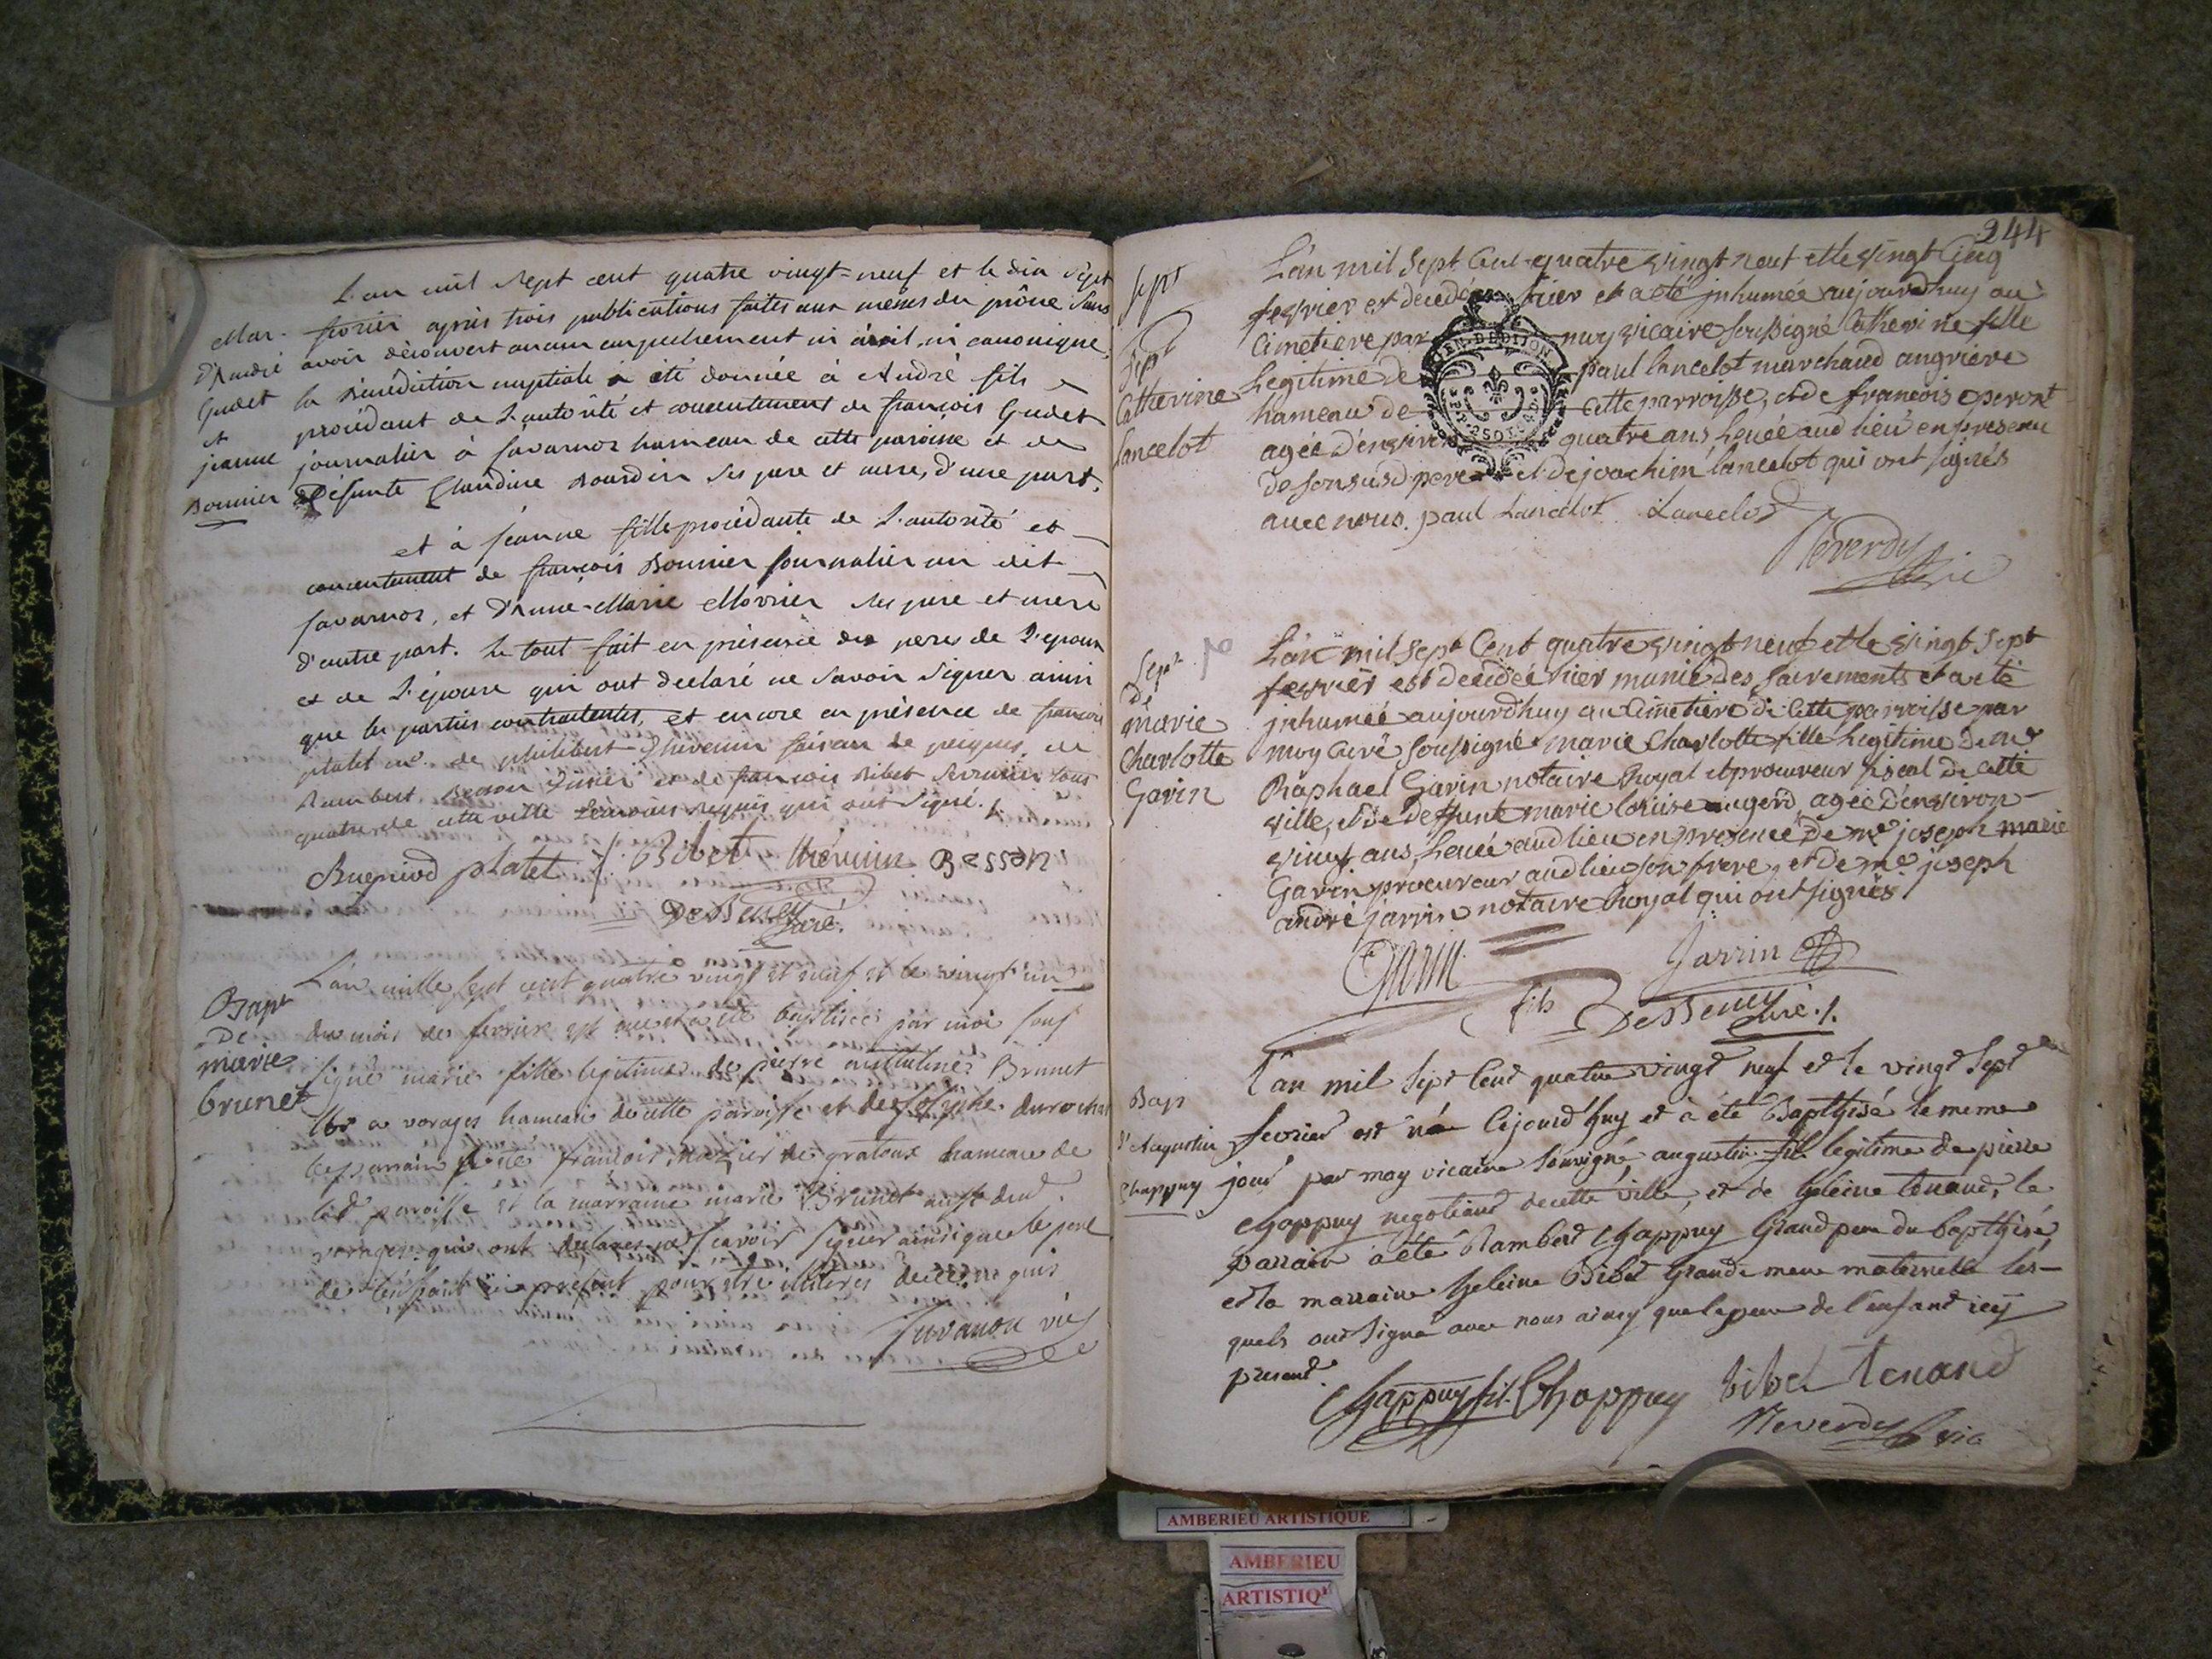 L'an mil sept cent quatre vingt=neuf et le dix sept
Mar. fevrier après trois publications faites aux messes du prône sans
d'André avoir découvert aucun empechement ni civil, ni canonique,
Gudet la Bénédiction nuptiale a été donnée à André fils
et procédant de L'autorité et consentement de françois Gudet
jeanne journalier à Javarnoz hameau de cette paroisse et de
Bonnier défunte Claudine Bourdin ses pere et mere, d'une part,
et à jeanne fille procédante de L'autorité et
consentement de françois Bonnier journalier au dit
Javarnoz, et d'Anne-Marie Morrier ses pere et mere
d'autre part. Le tout fait en présence des peres de L'epoux
et de L'épouse qui ont declaré ne savoir signer ainsi
que les parties contractantes, et encore en présence de françois
platet de philibert Thevenin faiseur de peignes, de
Rambert Besson et de françois Bibet serrurier tous
quatre de cette ville témoins requis qui ont signé.
Bugniod platet Bibet thévenin Besson
Desseney Curé.
Bapt
De
marie
brunet
L'an mille sept cent quatre vingt et neuf et le vingt un
du mois de fevrier est née et a été baptisée par moi sous
signé marie fille legitime de pierre Brunet
a vorages hameau de cette paroisse et de josephe durochat
le parrain a été francois de gratoux hameau de
lad. paroisse et la marraine marie Brunet aussi dud.
vorages qui ont declarés ne scavoir signer ainsi que le pere
de l'enfant ici present pour etre illiteres de ce requis
Juvanon vic
244
Sept
L'an mil sept Cent quatre vingt neuf et le vingt Cinq
fevrier est decedée hier et a eté jnhumée aujourdhuy au
Cimetiere par moy vicaire soussigné Catherine fille
Sept
Catherine
Lancelot
Legitime de paul lancelot marchand angrieve
hameau de Cette parroisse, et de francoise peront
agée d'environ quatre ans, Levée aud lieu en presence
de son susd pere et de joachim lancelot qui ont signés
avec nous. paul Lancelot Lancelot
Reverdy vic
GEN. DE DIJON
Sept
de
marie
Charlotte
Gavin
L'an mil sept Cent quatre vingt neuf et le vingt Sept
fevrier est decedée hier munie des sacrements et a eté
jnhumée aujourdhuy au Cimetiere de Cette parroisse par
moy Curé soussigné marie Charlotte fille Legitime de me
Raphael Gavin notaire Royal et procureur fiscal de Cette
ville, et de deffunte marie louise augerd, agée d'environ
vingt ans, Levée aud lieu en presence de me joseph marie
Gavin procureur aud lieu son frere, et de me joseph
andré jarrin notaire Royal qui ont signés
Gavin fils Jarrin
Desseney Curé.
Bap
d'Augustin
Chappuy
L'an mil sept Cent quatre vingt neuf et le vingt sept
fevrier est né Cejourd'huy et à été Bapthisé le meme
jour par moy vicaire soussigné augustin fils legitime de pierre
Chappuy negotiant de cette ville, et de heleine tenand, le
parrain à été Rambert Chappuy Grand pere du baptisé,
et la marraine heleine Bibet Grande mere maternelle les-
quels ont signé avec nous ainsy que le pere de l'enfant icy
present.
Chappuy fils Chappuy bibet tenand
Reverdy vic
AMBERIEU ARTISTIQUE
AMBERIEU
ARTISTIQ